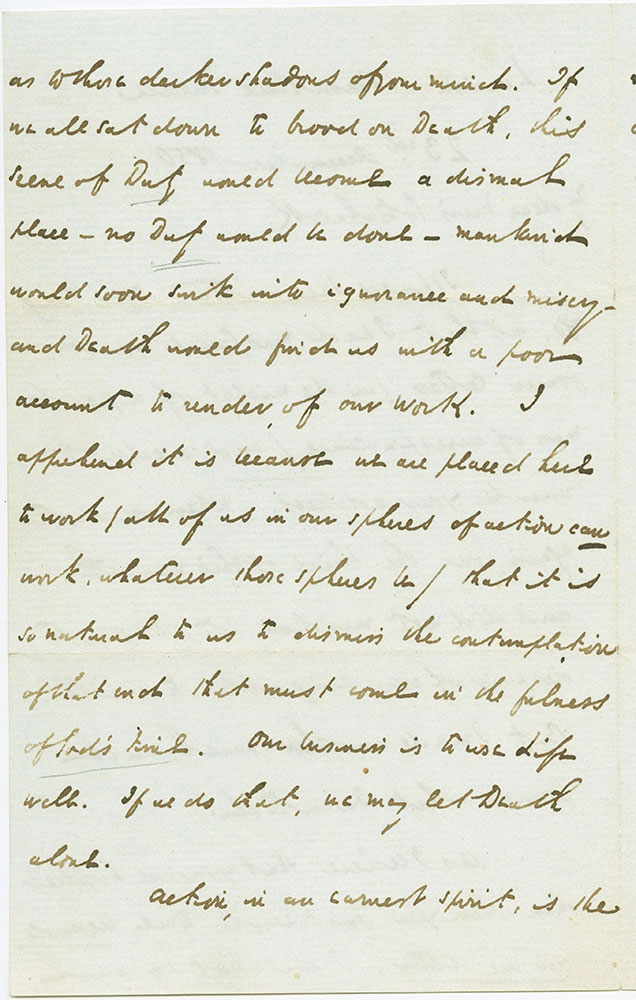 as to those darker shadows of your mind. If
we all sat down to brood on Death, this
scene of Duty would become a dismal
place – no Duty would be done – mankind
would soon sink into ignorance and misery –
and Death would find us with a poor
account to render, of our work. I
apprehend it is because we are placed here
to work (all of us in our spheres of action can
work, whatever those spheres be) that it is
so natural to us to dismiss the contemplation
of that end that must come in the fulness
of God's time. Our business is to use Life
well. If we do that, we may let Death
alone.
Action, in an earnest spirit, is the